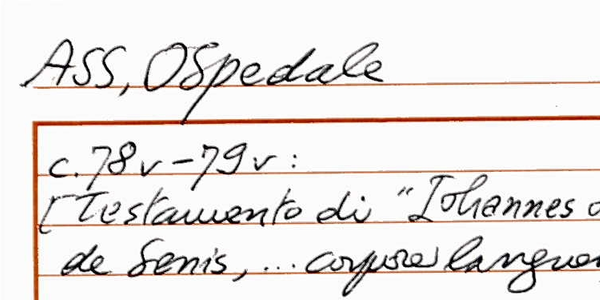 ASS, Ospedale
c. 78v-79v:
[Testamento di "Iohannes
de Senis, ... corpore langue